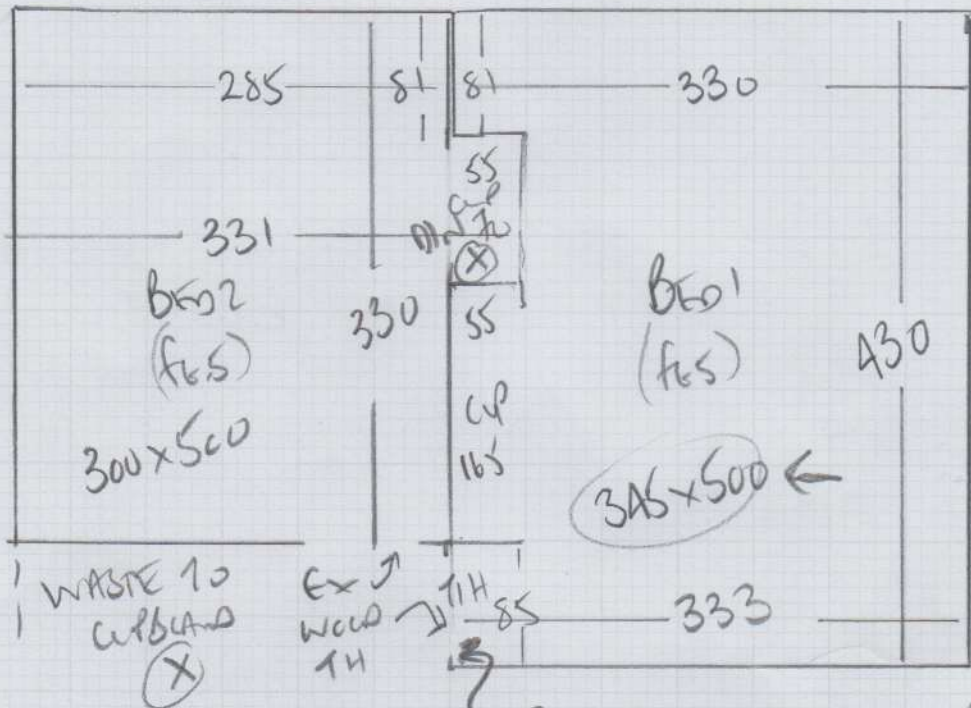 285
81
81
330
55
CUP
70
X
331
BED2
(fES)
300x500
330
55
CUP
165
BED1
(fES)
345x500
430
WASTE TO
CUPBOARD
X
EX
WOOD
TH
TH
85
333